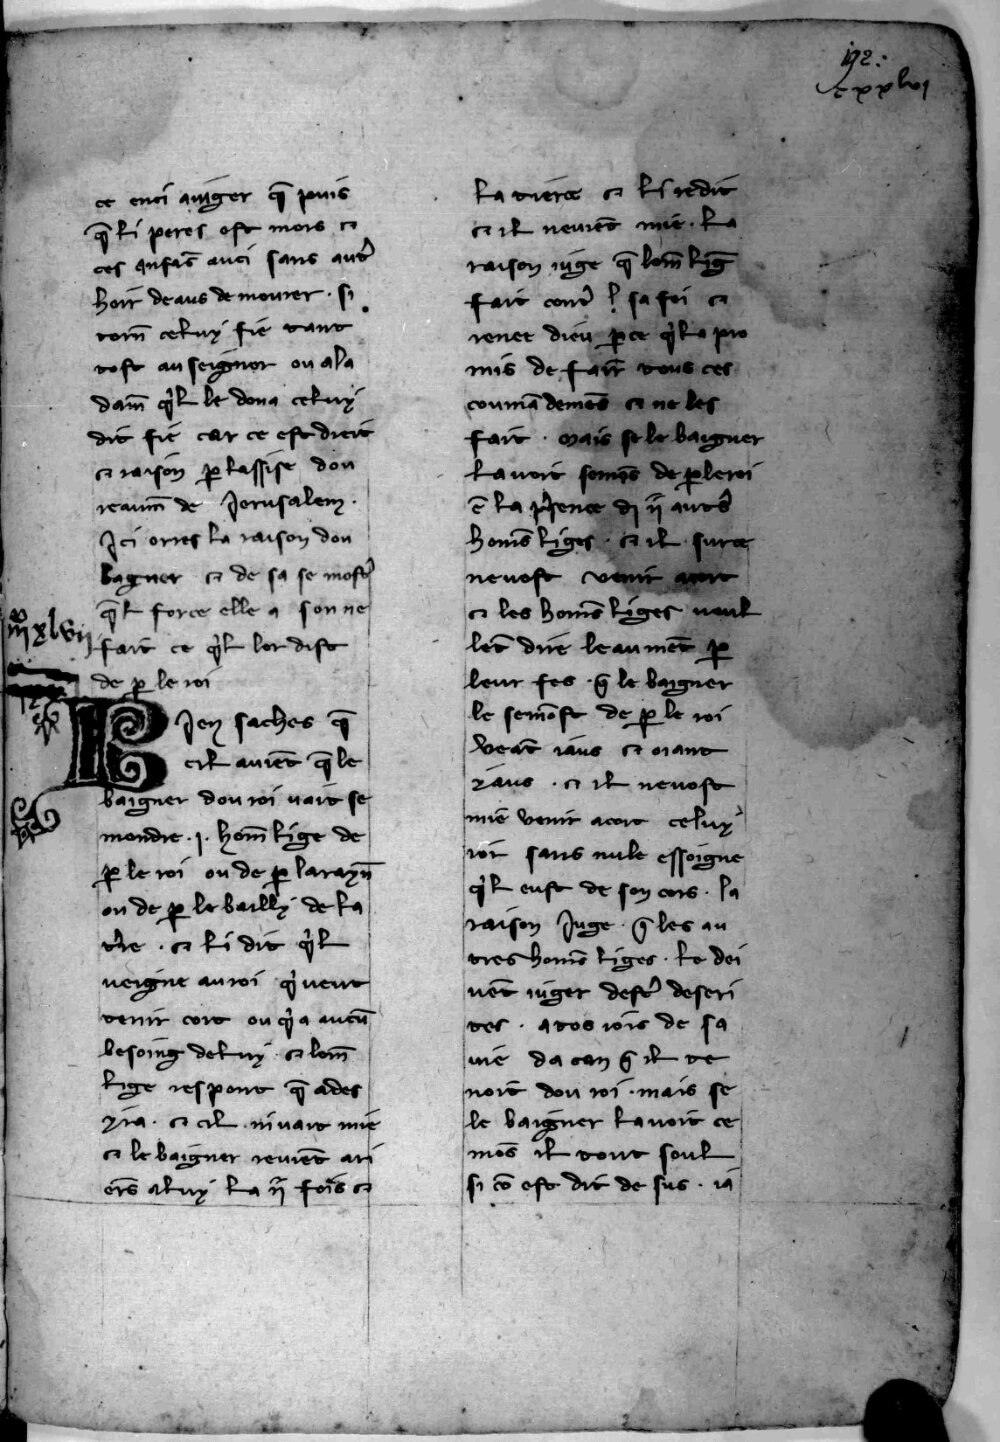 192:
cxxlvi
ce enci auiger q̄ puis
q̄ li peres est mors ⁊
ces anfās auci sans aut̾
hoir de aus demourer · si
torn̄ celuy fie tant
tost au seignor ou a la
dam̄ qͥl le dona celuy
dit fie car ce est dreit
⁊ raison ꝑ lassise dou
reaum̄ de Jerusalem ·
Jci orres la raison dou
bagner ⁊ de sa semost̾
q̄l force elle a son ne
fait ce qͥl lor dist
de ꝑ le roi
BJen saches q̄
cil auiēt q̄ le
baigner dou roi vait se
mondre · j · hom̄ lige de
ꝑ le roi ou de ꝑ la rayn̄
ou de ꝑ le bailly de la
t̾re · ⁊ li dit qͥl
veigne au roi qͥ veut
tenir cort ou qͥ a aucū
besoing de luy · ⁊ lom̄
lige respont q̄ ades
yra · ⁊ cil ni vait mie
⁊ le baigner reuiēt ari
ers a luy la ij̄ fois ⁊
la tierce ⁊ li redit
⁊ il ne vient mie · la
raison iuge q̄ lom̄ liḡ
fait cont̾ sa foi ⁊
renee dieu ꝑ ce qͥl a pro
mis de fair̄ tous ces
coumādemēs ⁊ ne les
fait · mais se le baigner
lauoit semōs de ꝑ le roi
ē la pͥsence ij̄ autr̾s
homēs liges · ⁊ il surce
ne vost venir a cort
⁊ les homēs liges veul
lēt dire leaumēt ꝑ
leur fes · q̄ le baigner
le semōst de ꝑ le roi
Veāt iaus ⁊ oiant
yaus · ⁊ il ne vost
mie venir a cort celuy
ior sans nule essoigne
qͥl eust de son cors · la
raison Juge · q̄ les au
tres homēs liges · le dei
uēt iuger dest̾ deseri
tes · a tos iors de sa
vie da can q̄ il te
noit dou roi · mais se
le baigner lauoit ce
mōs il tout soul
si cō est dit de sus · ia